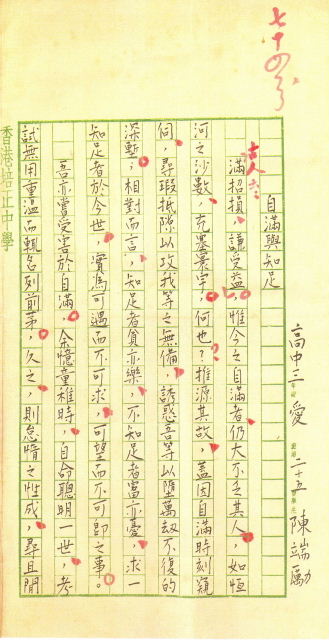 七十四分
高中三 愛 二十五 陳端勵
自滿與知足
古人云
滿招損，謙受益，惟今之自滿者仍大不乏其人，如恒
河之沙數，充塞寰宇，何也？推源其故，蓋因自滿時刻窺
伺，尋瑕抵隙以攻我等之無備，誘惑吾等以墮萬劫不復的
深塹；相對而言，知足者貧亦樂，不知足者富亦憂，求一
知足者於今世，實為可遇而不可求，可望而不可即之事。
吾亦嘗受害於自滿，余憶童稚時，自命聰明一世，考
試無用重溫而輒名列前茅，久之，則怠惰之性成，尋且閒
香港培正中學